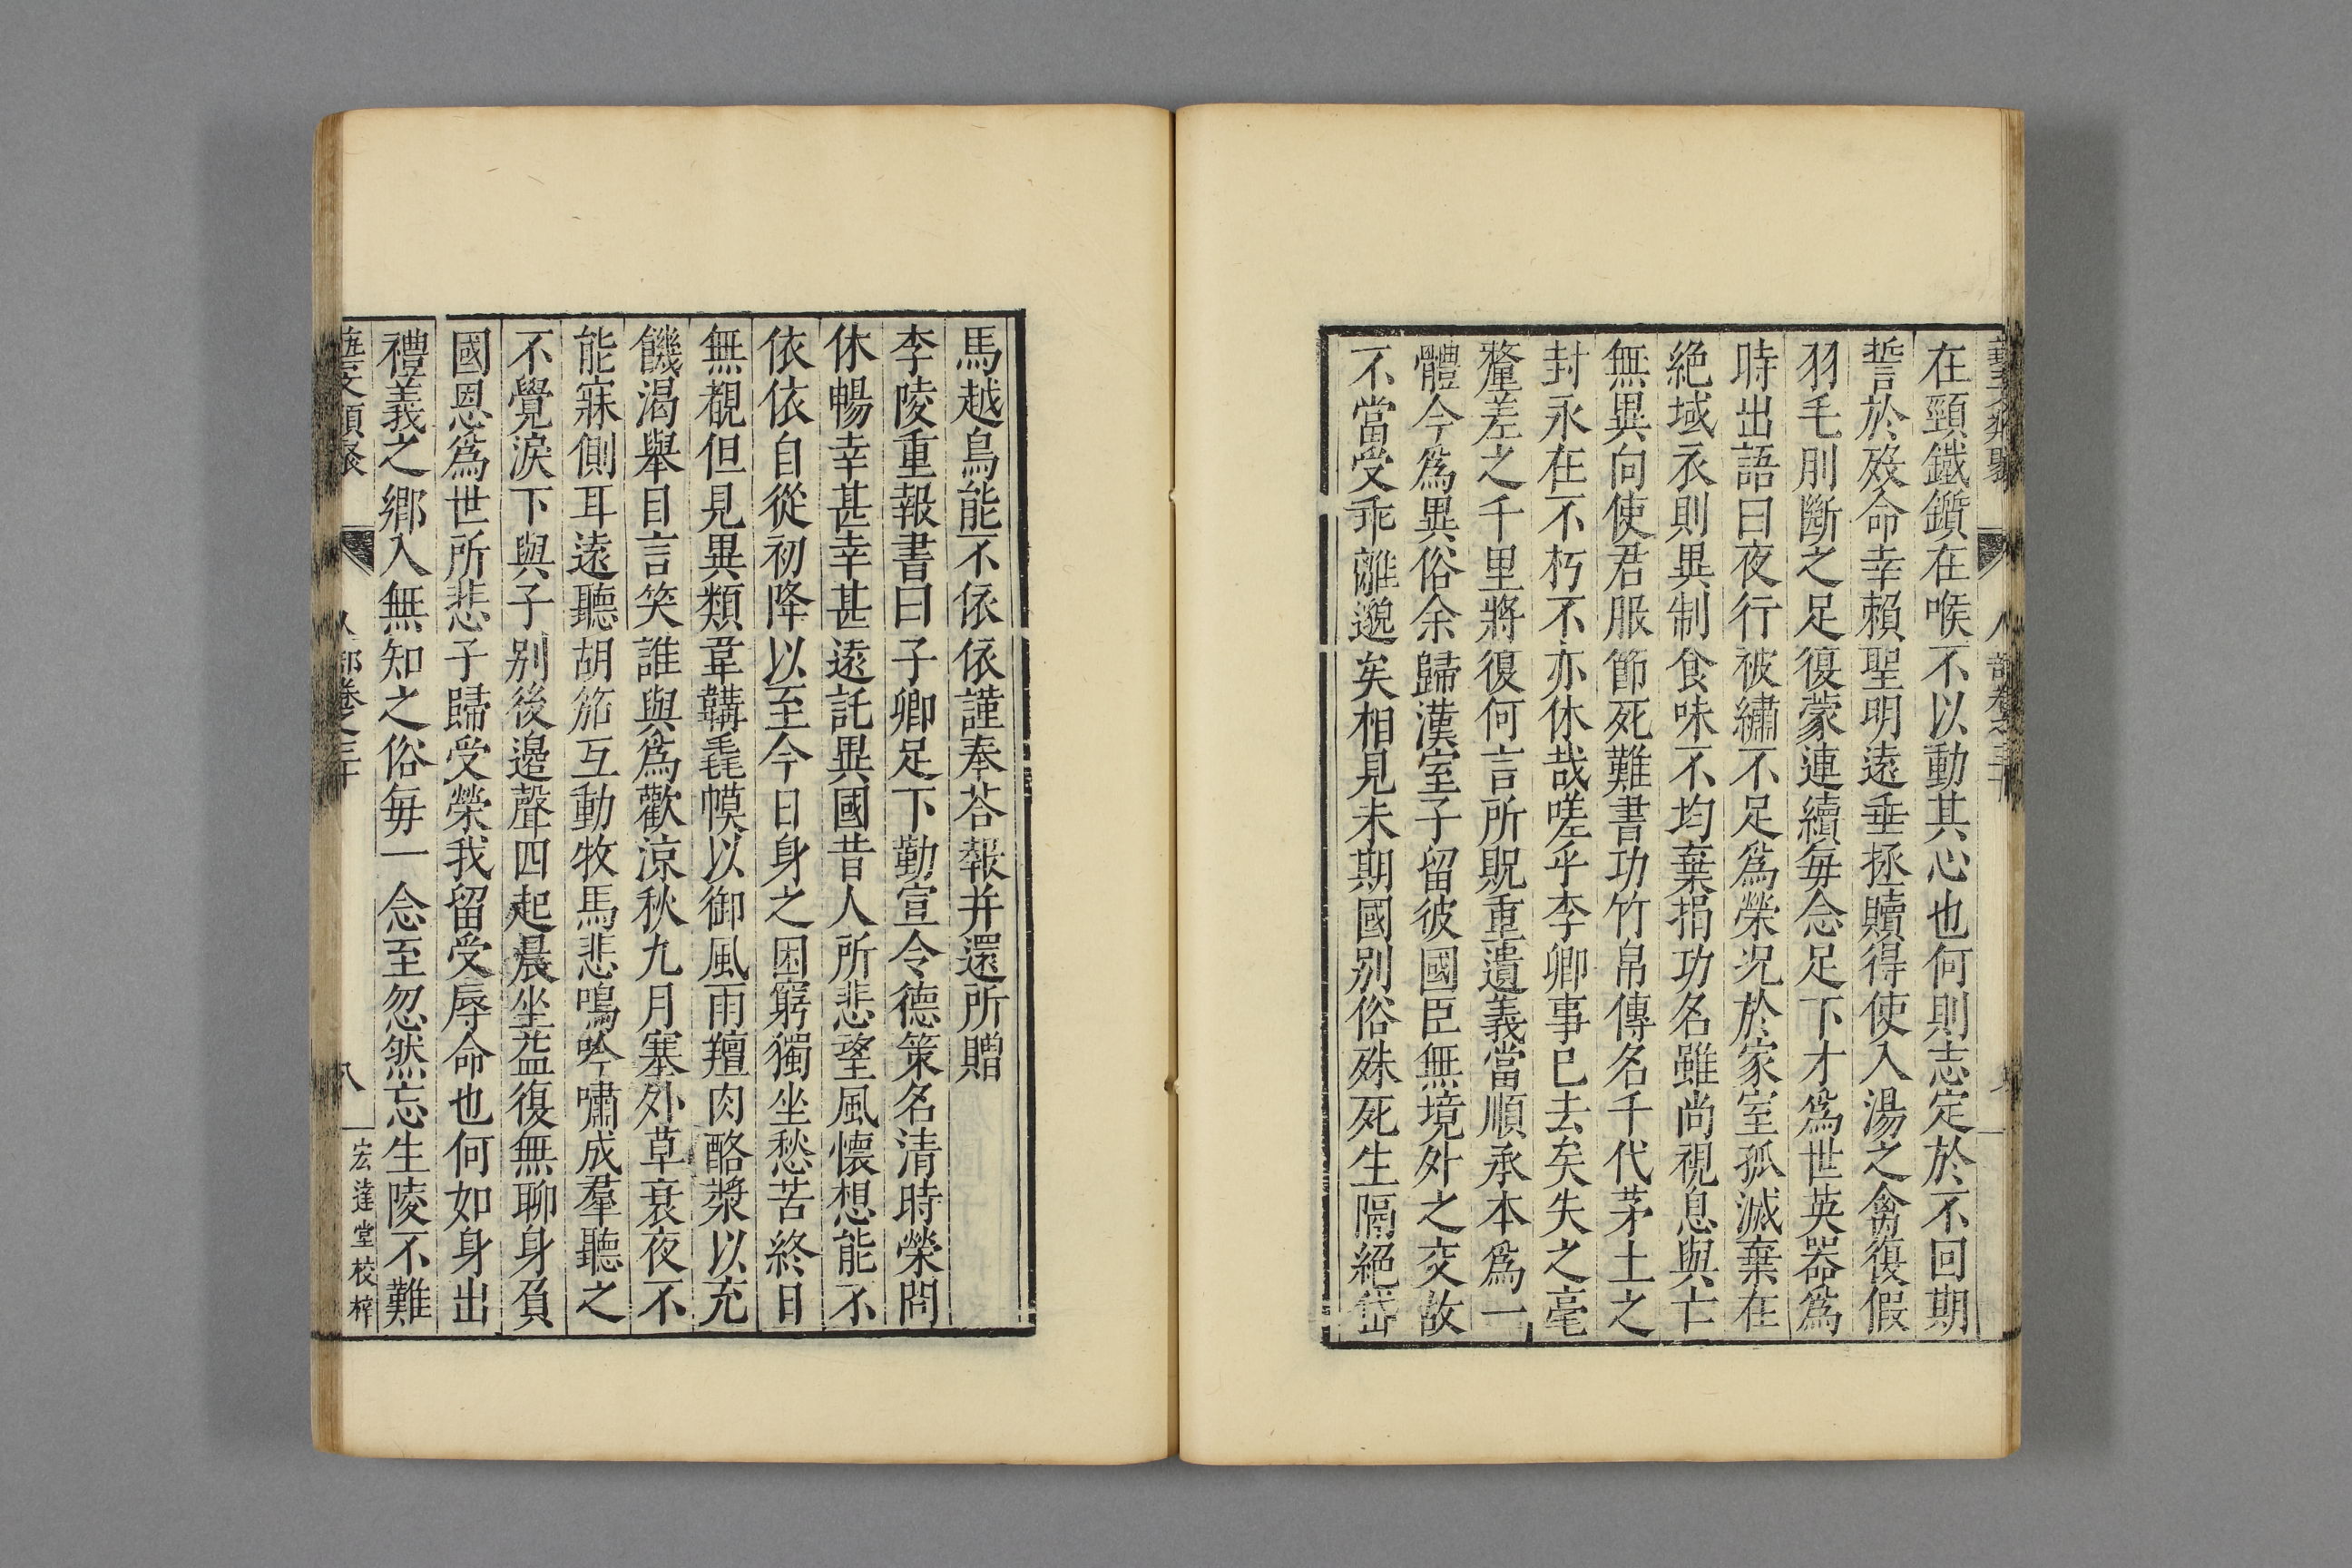 在頸鐵鑕在喉不以動其心也何則志定於不回期
誓於殁命幸賴聖明遠垂拯贖得使入湯之禽復假
羽毛刖斷之足復蒙連續每念足下才爲世英器爲
時出語曰夜行被繡不足爲榮况於家室孤滅棄在
絕域衣則異制食味不均棄捐功名雖尚視息與亡
無異向使君服節死難書功竹帛傳名千代茅土之
封永在不朽不亦休哉嗟乎李卿事已去矣失之毫
釐差之千里將復何言所貺重遺義當順承本爲一
體今爲異俗余歸漢室子留彼國臣無境外之交故
不當受乖離邈矣相見未期國别俗殊死生隔絕岱
馬越鳥能不依依謹奉荅報并還所贈
李陵重報書曰子卿足下勤宣令德策名清時榮問
休暢幸甚幸甚遠託異國昔人所悲望風懷想能不
依依自從初降以至今日身之困窮獨坐愁苦終日
無覩但見異類韋韝毳幙以御風雨羶肉酪漿以充
饑渴舉目言笑誰與爲歡涼秋九月塞外草衰夜不
能寐側耳遠聽胡笳互動牧馬悲鳴吟嘯成羣聽之
不覺淚下與子别後邊聲四起晨坐益復無聊身負
國恩爲世所悲子歸受榮我留受辱命也何如身出
禮義之鄉入無知之俗每一念至忽然忘生陵不難
藝文類聚 人部卷之三十 八 宏達堂校梓